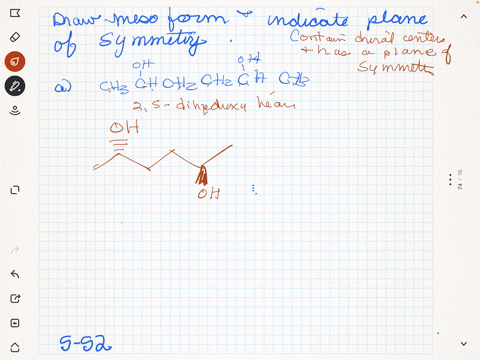 Draw meso form & indicate plane
of Symmetry .
Contain chiral centers
+ has a plane of
Symmetr
OH OH
a) CH3 CH CH2 CH2 CH CH3
2,5-dihydroxy hexan
OH
OH
74 / 76
5-52